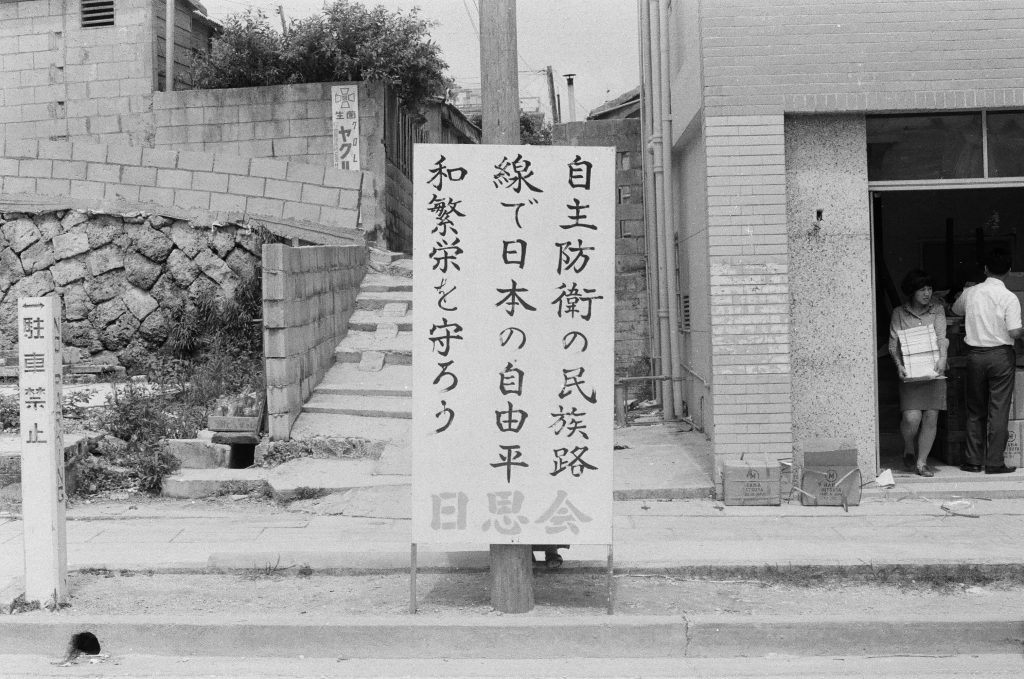 自主防衛の民族路
線で日本の自由平
和繁栄を守ろう
日思会
駐車禁止
クロレラ
ヤクル